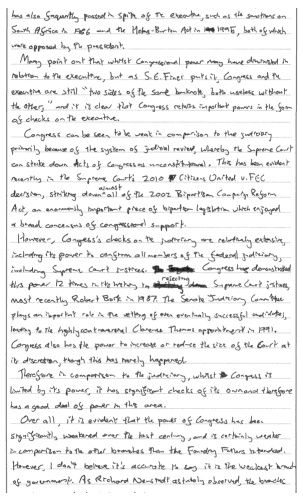 has also frequently passed in spite of the executive, such as the sanctions on
South Africa in 1986 and the Helms-Burton Act in 1996, both of which
were opposed by the president.
Many point out that whilst Congressional power may have diminished in
relation to the executive, but as S.E. Finer puts it, Congress and the
executive are still "two sides of the same banknote, both useless without
the other," and it is clear that Congress retains important powers in the form
of checks on the executive.
Congress can be seen to be weak in comparison to the judiciary
primarily because of the system of judicial review, whereby the Supreme Court
can strike down Acts of Congress as unconstitutional. This has been evident
recently in the Supreme Court's 2010 Citizens United v. FEC
decision, striking down almost all of the 2002 Bipartisan Campaign Reform
Act, an enormously important piece of bipartisan legislation which enjoyed
a broad consensus of congressional support.
However, Congress's checks on the judiciary are relatively extensive,
including its power to confirm all members of the federal judiciary,
including Supreme Court justices. Congress has demonstrated
this power 12 times in its history in rejecting Supreme Court justices,
most recently Robert Bork in 1987. The Senate Judiciary Committee
plays an important role in the vetting of even eventually successful candidates,
leading to the highly controversial Clarence Thomas appointment in 1991.
Congress also has the power to increase or reduce the size of the Court at
its discretion, though this has rarely happened.
Therefore in comparison to the judiciary, whilst Congress is
limited by its power, it has significant checks of its own and therefore
has a good deal of power in this area.
Over all, it is evident that the power of Congress has been
significantly weakened over the last century, and is certainly weaker
in comparison to the other branches than the Founding Fathers intended.
However, I don't believe it's accurate to say it is the weakest branch
of government. As Richard Neustadt astutely observed, the branches